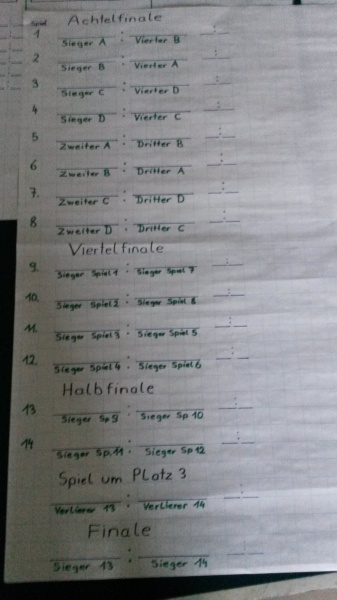 Spiel Achtelfinale
1 Sieger A : Vierter B :
2 Sieger B : Vierter A :
3 Sieger C : Vierter D :
4 Sieger D : Vierter C :
5 Zweiter A : Dritter B :
6 Zweiter B : Dritter A :
7. Zweiter C : Dritter D :
8 Zweiter D : Dritter C :
Viertelfinale
9. Sieger Spiel 1 : Sieger Spiel 7 :
10. Sieger Spiel 2 : Sieger Spiel 8 :
11. Sieger Spiel 3 : Sieger Spiel 5 :
12. Sieger Spiel 4 : Sieger Spiel 6 :
Halbfinale
13 Sieger Sp 9 : Sieger Sp 10 :
14 Sieger Sp. 11 : Sieger Sp 12 :
Spiel um Platz 3
Verlierer 13 : Verlierer 14 :
Finale
Sieger 13 : Sieger 14 :